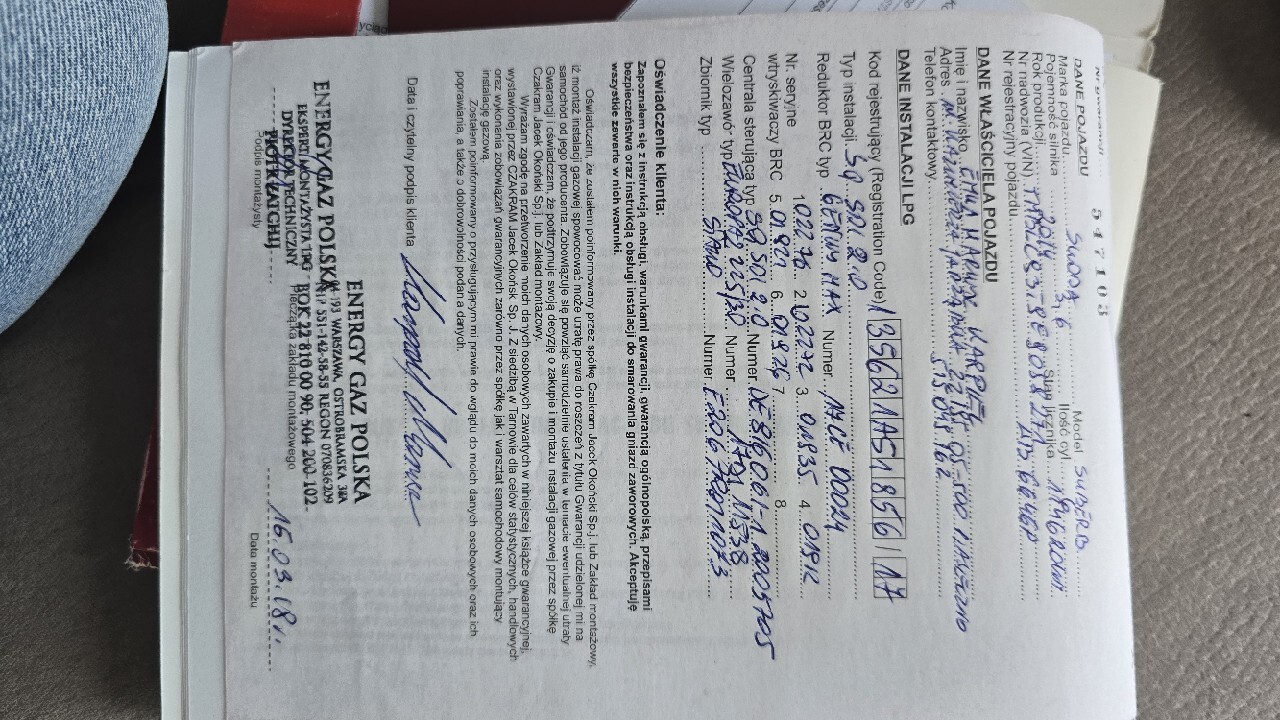 547103
DANE POJAZDU
Marka pojazdu SKODA Model SUPERB
Pojemność silnika 3,6 Ilość cyl. 6
Rok produkcji Stan licznika
Nr nadwozia (VIN)
Nr rejestracyjny pojazdu
DANE WŁAŚCICIELA POJAZDU
Imię i nazwisko KARPIEŃ
Adres
Telefon kontaktowy
DANE INSTALACJI LPG
Kod rejestrujący (Registration Code) 1356211451856/17
Typ instalacji SQ SDI 2.0
Reduktor BRC typ GENIUS MAX Numer 00024
Nr. seryjne 1. 02276 2. 02272 3. 01835 4. 01912
wtryskiwaczy BRC 5. 01801 6. 01926 7. 8.
Centrala sterująca typ SQ SDI 2.0 Numer DE816061-1
Wielozawór typ EUROPA 225/30 Numer
Zbiornik typ STAKO Numer
Oświadczenie klienta:
Zapoznałem się z instrukcją obsługi, warunkami gwarancji, gwarancją ogólnopolską, przepisami
bezpieczeństwa oraz instrukcją obsługi instalacji do smarowania gniazd zaworowych. Akceptuję
wszystkie zawarte w nich warunki.
Oświadczam, że zostałem poinformowany przez spółkę Czakram Jacek Okoński Sp.j. lub Zakład montażowy,
iż montaż instalacji gazowej spowodować może utratę prawa do roszczeń z tytułu Gwarancji udzielonej mi na
samochód od jego producenta. Zobowiązuję się powziąć samodzielnie ustalenia w temacie ewentualnej utraty
Gwarancji i oświadczam, że podtrzymuję swoją decyzję o zakupie i montażu instalacji gazowej przez spółkę
Czakram Jacek Okoński Sp.j. lub Zakład montażowy.
Wyrażam zgodę na przetworzenie moich danych osobowych zawartych w niniejszej książce gwarancyjnej,
wystawionej przez CZAKRAM Jacek Okońsk Sp. J. Z siedzibą w Tarnowie dla celów statystycznych, handlowych
oraz wykonania zobowiązań gwarancyjnych zarówno przez spółkę jak i warsztat samochodowy montujący
instalację gazową.
Zostałem poinformowany o przysługującym mi prawie do wglądu do moich danych osobowych oraz ich
poprawiania, a także o dobrowolności podania danych.
Data i czytelny podpis klienta
ENERGY GAZ POLSKA
04-193 WARSZAWA, OSTROBRAMSKA 38A
NIP 551-142-58-55 REGON 070836209
BOK 22 810 00 90, 504 200 102
Pieczątka zakładu montażowego
ENERGY GAZ POLSKA
EKSPERT MONTAŻYSTA LPG
DYREKTOR TECHNICZNY
PIOTR
Podpis montażysty
16.03.18r.
Data montażu